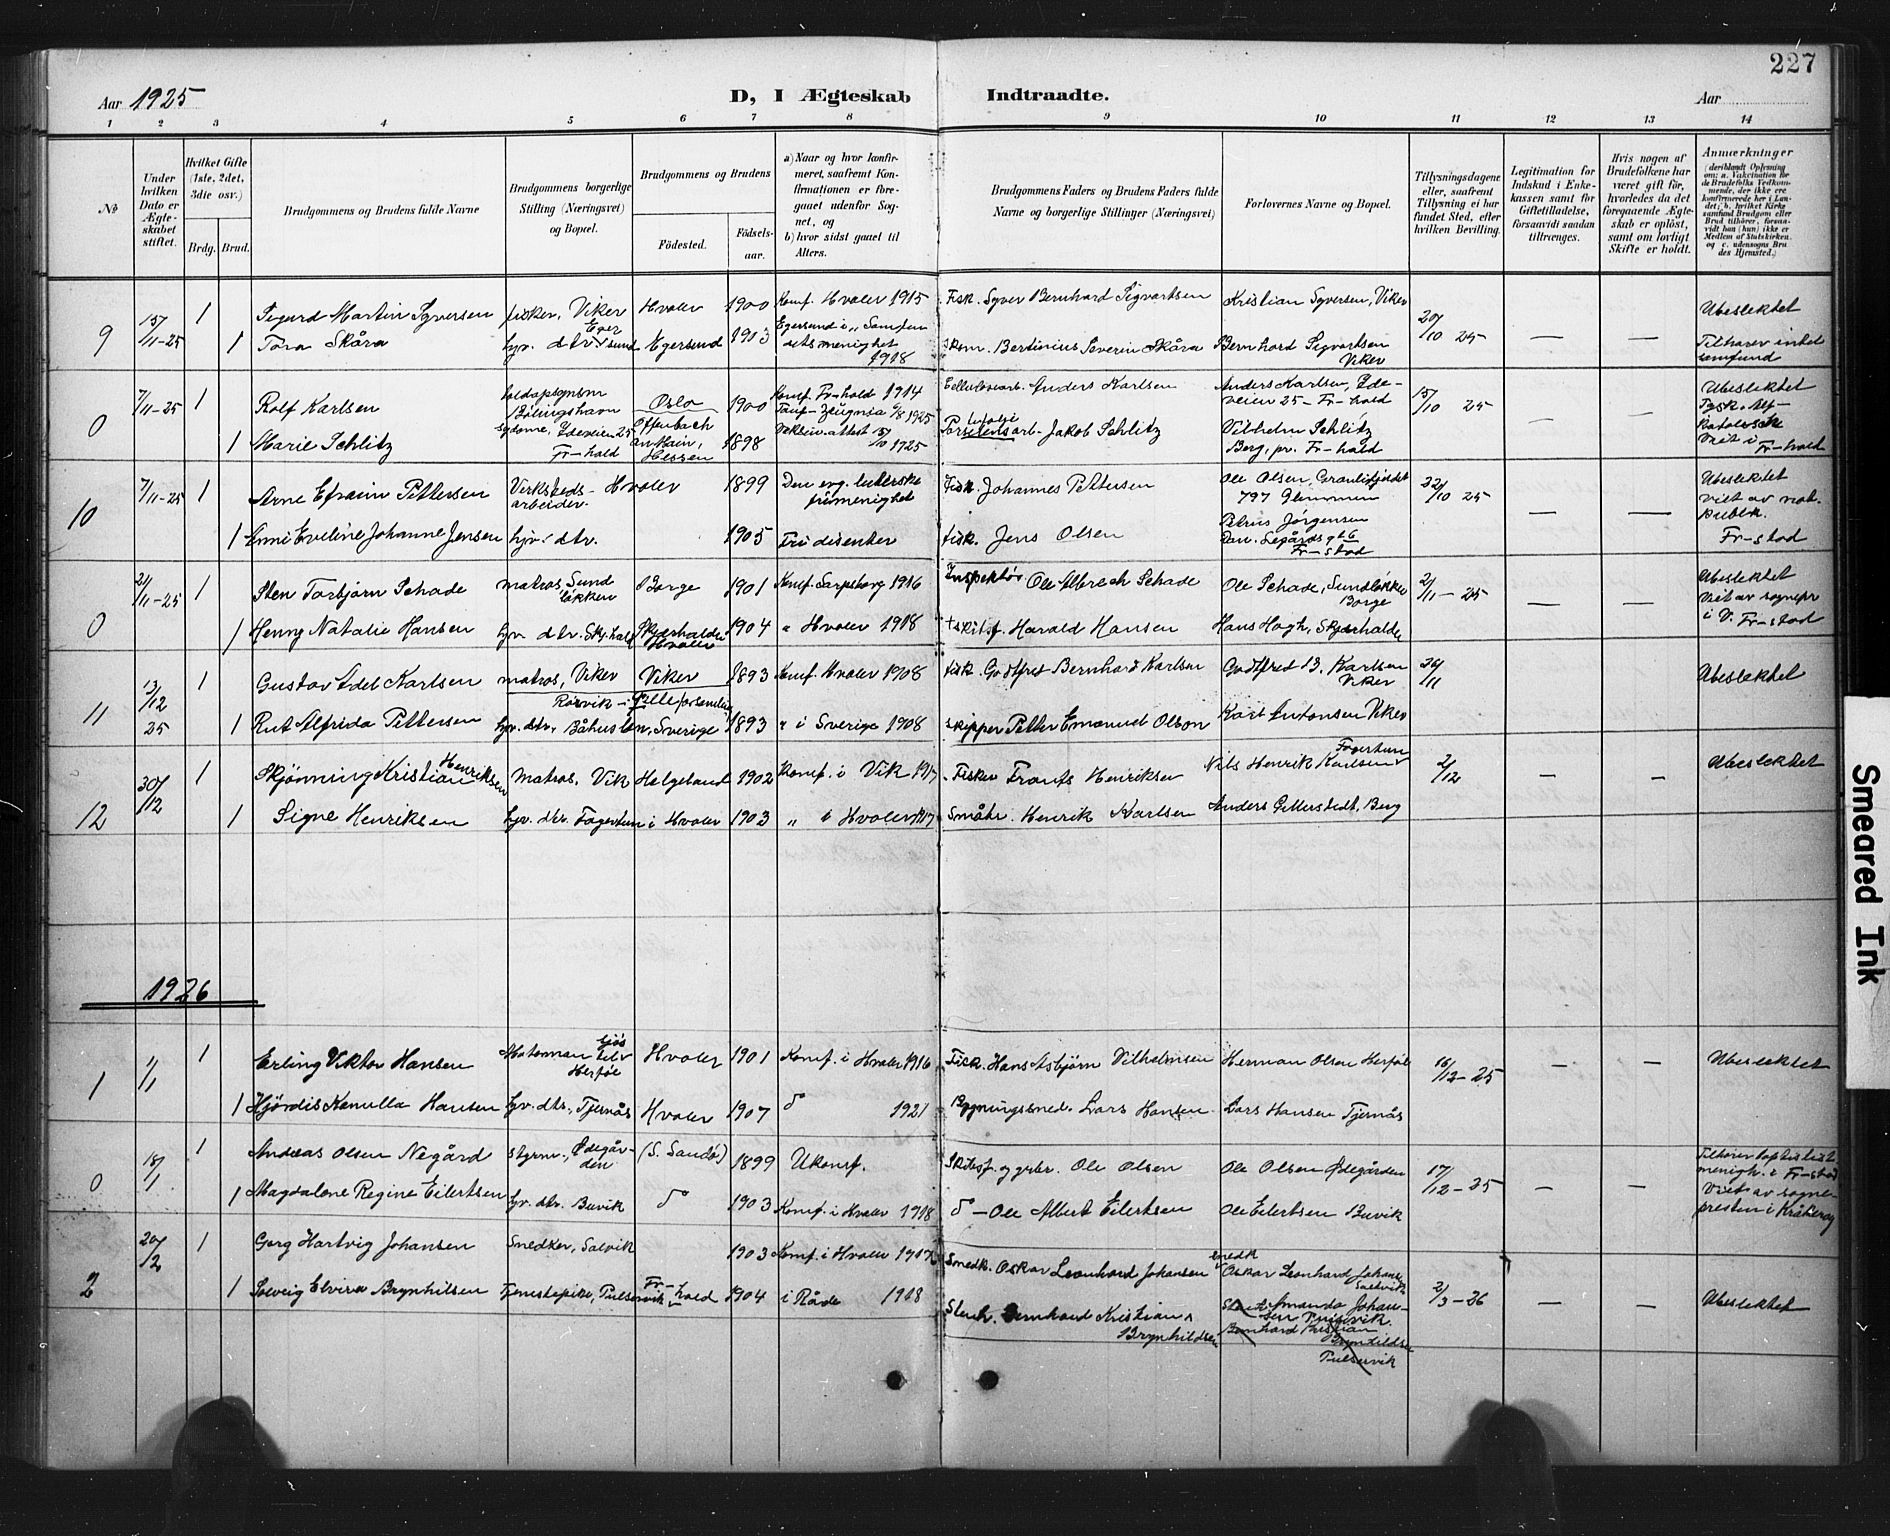 227
Aar 1925
D, I Ægteskab Indtraadte.
Aar
1 2 3 4 5 6 7 8 9 10 11 12 13 14
№
Under hvilken Dato er Ægteskabet stiftet.
Hvilket Gifte (1ste, 2det, 3die osv.)
Brdg. Brud.
Brudgommens og Brudens fulde Navne
Brudgommens borgerlige Stilling (Næringsvei) og Bopæl.
Brudgommens og Brudens
Fødested. Fødsels-aar.
a) Naar og hvor konfirmeret, saafremt Konfirmationen er foregaaet udenfor Sognet, og
b) hvor sidst gaaet til Alters.
Brudgommens Faders og Brudens Faders fulde Navne og borgerlige Stillinger (Næringsvei)
Forlovernes Navne og Bopæl.
Tillysningsdagene eller, saafremt Tillysning ei har fundet Sted, efter hvilken Bevilling.
Legitimation for Indskud i Enkekassen samt for Giftetilladelse, forsaavidt saadan tiltrænges.
Hvis nogen af Brudefolkene har været gift før, hvorledes da det foregaaende Ægteskab er opløst, samt om lovligt Skifte er holdt.
Anmærkninger
9 15/11-25 1 Sigurd Martin Syversen fisker, Viker Hvaler 1900 Konf. Hvaler 1915 Fisk. Syver Bernhard Sigvartsen Kristian Syversen, Viker 20/10 25 — — Ubeslektet
1 Tora Skåra hjv. dtr. Egersund Egersund 1903 Egersund i 1918 Bertinius Severin Skåra Bernhard Sigvartsen Viker Tilhører intet samfund
0 7/11-25 1 Rolf Karlsen Oslo 1900 Konf. Fr-hald 1914 Anders Karlsen Anders Karlsen, Ideveien 25 - Fr-hald 15/10 25 — — Ubeslektet
1 Marie Schlitz Offenbach am Main, Hessen 1898 Jakob Schlitz Vilhelm Schlitz Berg, pr. Fr-hald Viet i Fr-hald
10 7/11-25 1 Arne Efraim Pettersen Verkstedsarbeider Hvaler 1899 Den evg. lutherske frimenighet Fisk. Johannes Pettersen Ole Olsen, 797 Glemmen 22/10 25 — — Ubeslektet viet av not. publik. Fr-stad
1 Enni Eveline Johanne Jensen hjv. dtr. 1905 Fri disenter fisk. Jens Olsen Petrus Jørgensen Fr-stad
0 21/11-25 1 Sten Torbjørn Schade matros, Sundløkken Borge 1901 Konf. Sarpsborg 1916 Inspektør Ole Albrech Schade Ole Schade, Sundløkken Borge 2/11-25 — — Ubeslektet Viet av sognepr i V. Fr-stad
1 Henny Natalie Hansen hjv. dtr. Skj.hald Skjærhalden Hvaler 1904 " Hvaler 1918 Harald Hansen Hans Hogh, Skjærhalden
11 13/12 25 1 Gustav Adel Karlsen matros, Viker Viker 1893 Konf. Hvaler 1908 fisk. Godtfred Bernhard Karlsen Godtfred B. Karlsen Viker 26/11 Ubeslektet
1 Rut Alfrida Pettersen hjv. dtr. Båhuslen, Sverige 1893 " i Sverige 1908 skipper Petter Emanuel Olson Karl Antonsen Viker
12 30/12 1 Skjønning Kristian Henriksen Matros, Vik Helgeland 1902 Konf. i Vik 1917 Fisker Frants Henriksen Nils Henrik Karlsen Fagertun 2/12 — — Ubeslektet
1 Signe Henriksen hjv. dtr. Fagertun i Hvaler 1903 " i Hvaler 1917 Småbr. Henrik Karlsen Anders Gellerstedt, Berg
1926
1 1/1 1 Erling Viktor Hansen Herføl Hvaler 1901 Konf. i Hvaler 1916 Fisk. Hans Asbjørn Vilhelmsen Herman Olsen Herføl 16/12-25 — — Ubeslektet
1 Hjørdis Kamilla Hansen hjv. dtr., Tjernås Hvaler 1907 do 1921 Bygningssned. Lars Hansen Lars Hansen Tjernås
0 18/1 1 Andreas Olsen Negård styrm., Ødegården (S. Sandø) 1899 Ukonf. Ole Olsen Ole Olsen Ødegården 17/12-25 — — Tilhører baptistmenigh. i Fr-stad Viet av sognepresten i Kråkerøy
1 Magdalene Regine Eilertsen hjv. dtr. Buvik do 1903 Konf. i Hvaler 1918 do - Ole Albert Eilertsen Ole Eilertsen Buvik
2 20/12 1 Gorg Hartvig Johansen Snedker, Salvik 1903 Konf. i Hvaler 1917 Snedk. Oskar Leonhard Johansen snedk Oskar Leonhard Johansen 2/3-26 — — Ubeslektet
1 Solveig Elvira Brynhilsen Tjenestepike, Pulservik Fr-hald 1904 i Råde 1918 Stenh. Bernhard Kristian Brynhildsen Amanda Johansen Pulservik
Bernhard Kristian Brynhildsen Pulservik
Smeared Ink